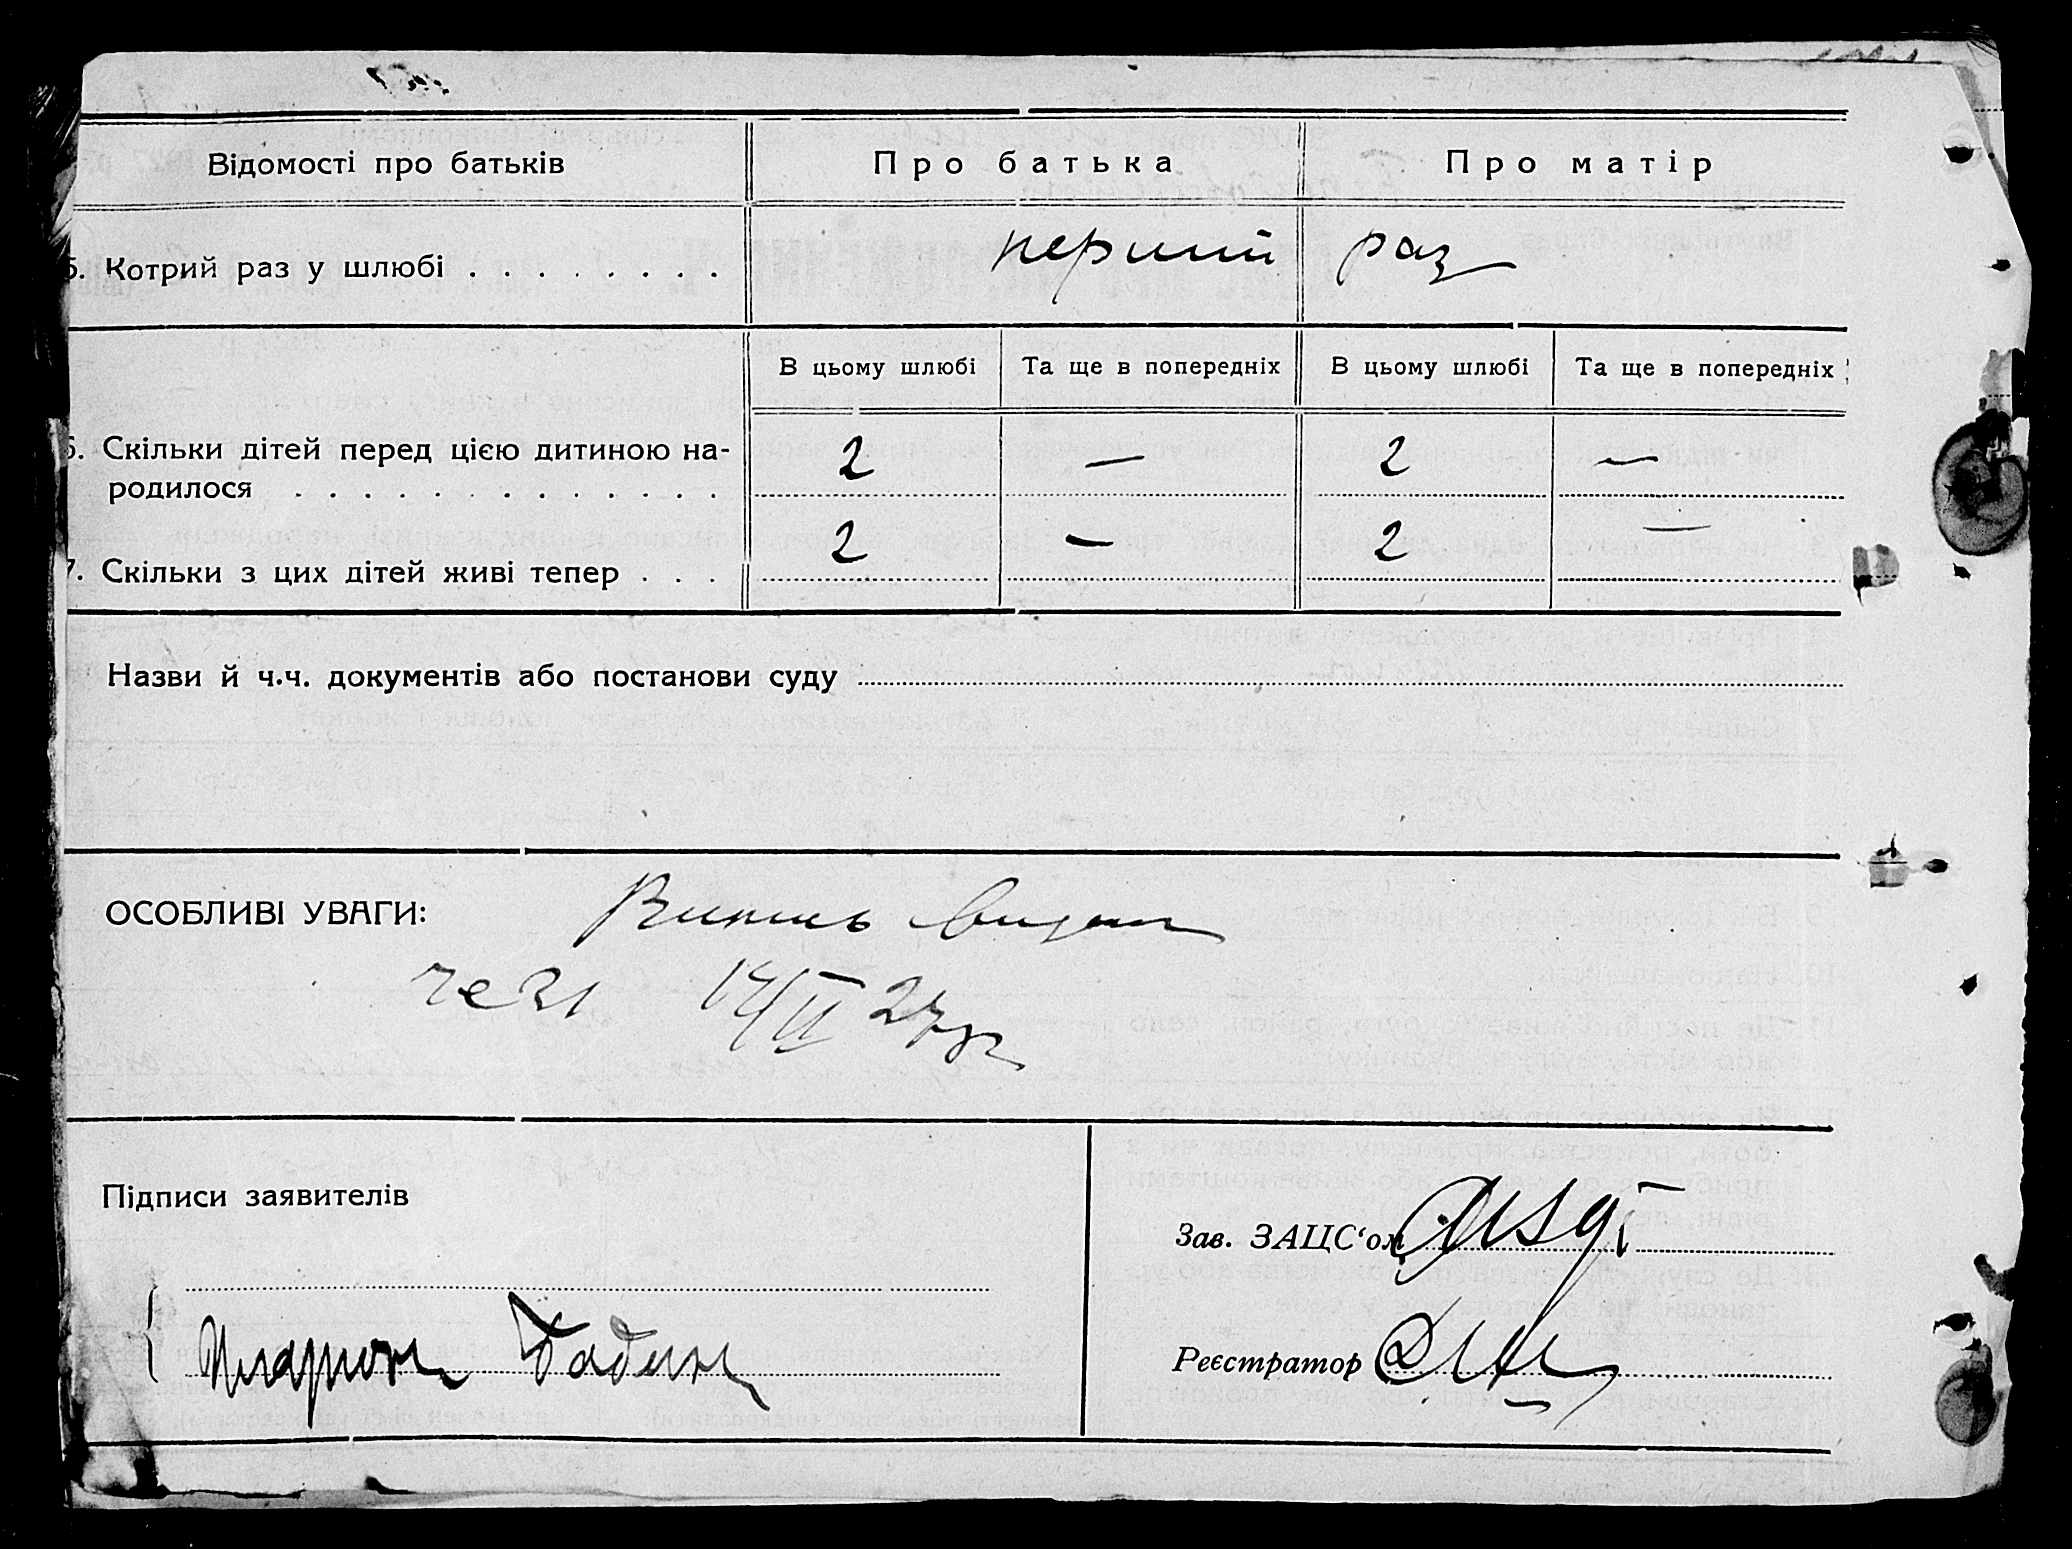 Відомості про батьків Про батька Про матір
Котрий раз у шлюбі . . . . . . . . перший раз
В цьому шлюбі Та ще в попередніх В цьому шлюбі Та ще в попередніх
6. Скільки дітей перед цією дитиною на-
родилося . . . . . . . . . . . . . 2 — 2 —
7. Скільки з цих дітей живі тепер . . . 2 — 2 —
Назви й ч.ч. документів або постанови суду
ОСОБЛИВІ УВАГИ: Випись видан
Підписи заявителів
Зав. ЗАЦС‘ом
Реєстратор